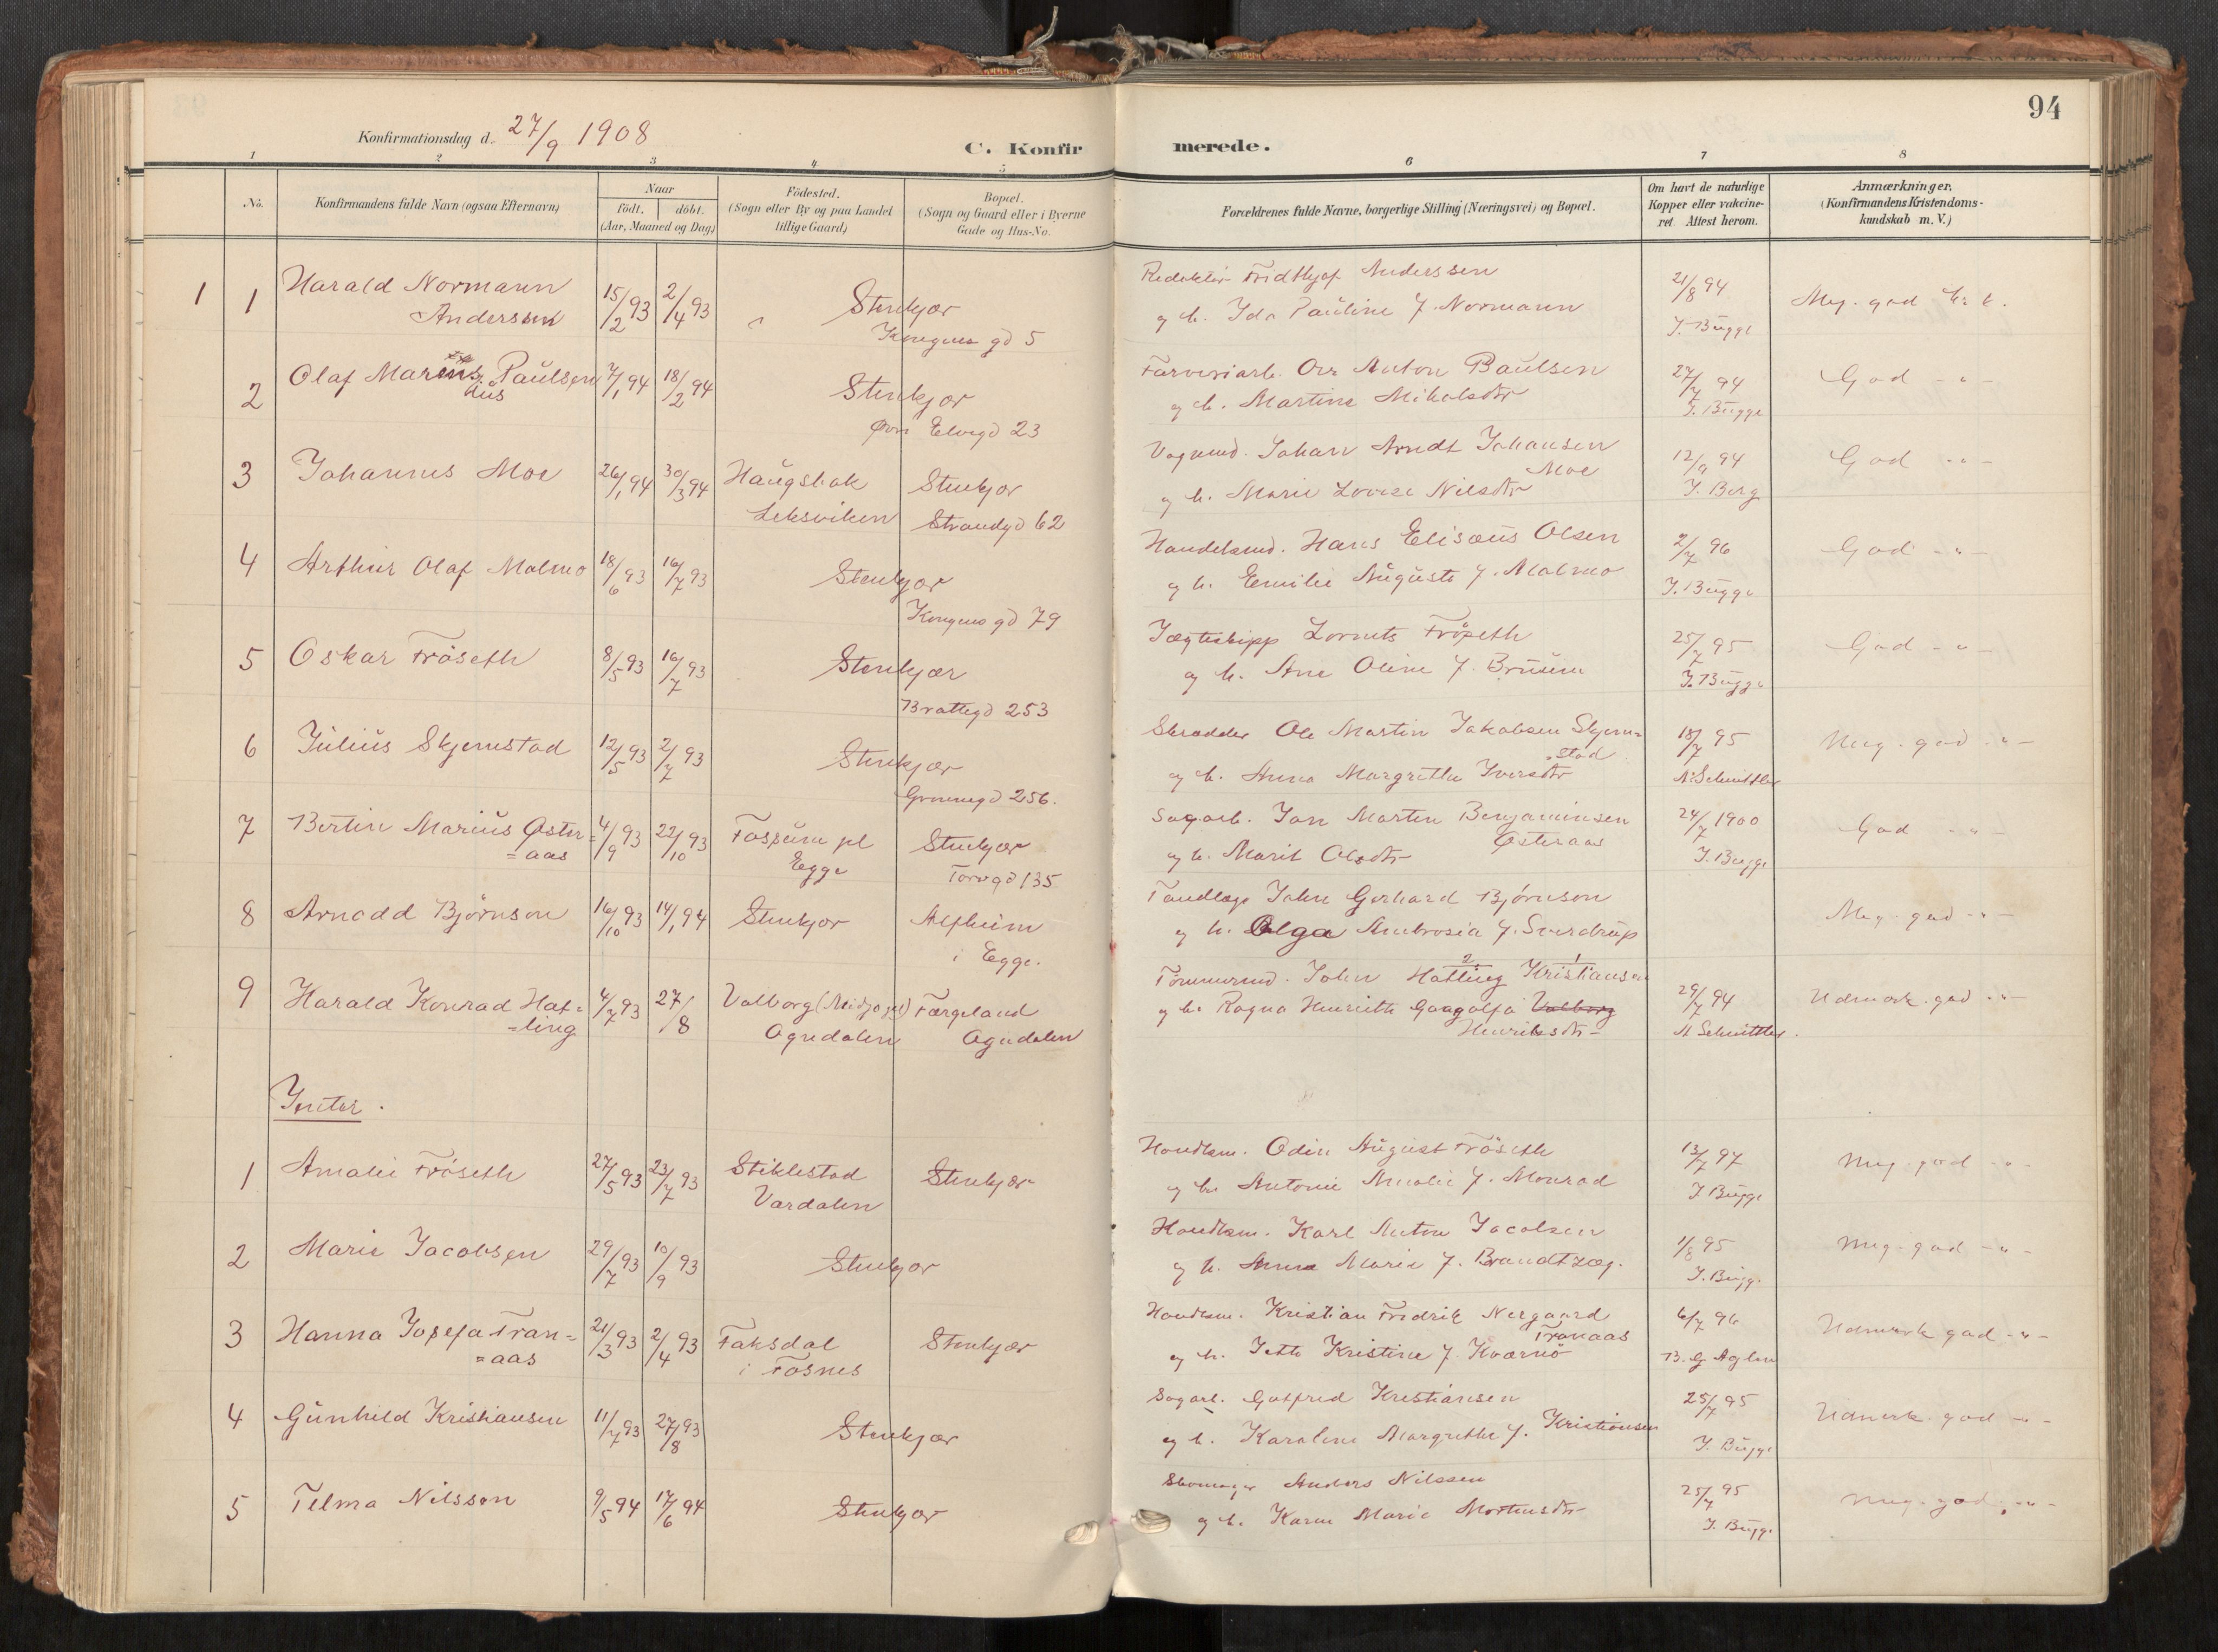 94
Konfirmationsdag d. 27/9 1908
C. Konfirmerede.
1 2 3 4 5 6 7 8
No.
Konfirmandens fulde Navn (ogsaa Efternavn)
Naar
født. døbt.
(Aar, Maaned og Dag)
Födested.
(Sogn eller By og paa Landet
tillige Gaard)
Bopæl.
(Sogn og Gaard eller i Byerne
Gade og Hus-No.
Forældrenes fulde Navne, borgerlige Stilling (Næringsvei) og Bopæl.
Om havt de naturlige
Kopper eller vakcine-
ret. Attest herom.
Anmærkninger.
(Konfirmandens Kristendoms-
kundskab m. V.)
1 1 Harald Normann 15/2 93 2/4 93 Stenkjær Redaktör Fridthjof Anderssen 21/8 94 Meg. god
Anderssen Kongens gd 5 og h. Ida Pauline f. Normann J. Bugge
2 Olaf Marius Paulsen 7/1 94 18/2 94 Stenkjær Farveriarb. Anton Paulsen 27/7 94 God - " -
ius Øvre Elvegd 23 og h. Martine Mikalsdtr J. Bugge
3 Johannes Moe 26/1 94 30/3 94 Haugsbak Stenkjær Vognmd. Johan Arndt Johansen 12/9 94 God - " -
Leksviken Strandgd 62 Moe
og h. Marie Lovise Nilsdtr J. Berg
4 Arthur Olaf Malmo 18/6 93 16/7 93 Stenkjær Handelsmd. Hans Elisæus Olsen 2/7 96 God - " -
Kongens gd 79 og h. Emilie Auguste f. Malmo J. Bugge
5 Oskar Fröseth 8/5 93 16/7 93 Stenkjær Jægteskipp Lornts Fröseth 25/7 95 God - " -
Brattegd 253 og h. Ane Oline f. Bruem J. Bugge
6 Julius Skjemstad 12/5 93 2/7 93 Stenkjær Skrædder Ole Martin Jakobsen Skjem= 18/7 95 Meg. god - " -
stad
256. og h. Anna Margrethe Iversdtr Schnitler
7 Bertin Marius Øster= 4/9 93 22/10 93 Fossum pl Stenkjær Sagarb. Jon Martin Benjaminsen 24/7 1900 God - " -
=aas Egge Torvgd 135 Østeraas
og h. Marit Olsdtr J. Bugge
8 Arnold Bjørnson 16/10 93 14/1 94 Stenkjær Alfheim Tandlæge John Gerhard Bjørnson Meg. god - " -
i Egge. og h. Olga Ambrosia f. Sverdrup
9 Harald Konrad Hat= 4/7 93 27/8 Valborg Færgeland Tömmermd. John 2 Hatling 1 Kristiansen 29/7 94 Udmærk. god - " -
=ling Ogndalen Ogndalen og h. Ragna Henriette Valborg
Henriksdtr Schnitler
Jenter.
1 Amalie Fröseth 27/5 93 23/7 93 Stiklestad Stenkjær Handlsm. Odin August Fröseth 13/7 97 Meg. god - " -
Værdalen og h. Antonie Amalie f. Monrad J. Bugge
2 Marie Jacobsen 29/7 93 10/9 93 Stenkjær Handlsm. Karl Anton Jacobsen 1/8 95 Meg. god - " -
og h. Anna Marie f. Brandtzæg. J. Bugge
3 Hanna Josefa Tran= 21/3 93 2/4 93 Faksdal Stenkjær Handlsm. Kristian Fredrik Nergaard 6/7 96 Udmærk god - " -
=aas i Fosnes Tranaas
og h. Jette Kristine f. Kværnö B. G. Aglen
4 Gunhild Kristiansen 11/7 93 27/8 93 Stenkjær Sagarb. Gotfred Kristiansen 25/7 95 Udmerk. god - " -
og h. Karoline Margrethe f. Kristiansen J. Bugge
5 Telma Nilsson 9/5 94 17/6 94 Stenkjær Skomager Anders Nilssen 25/7 95 Meg. god. - " -
og h. Karen Marie Mortensdtr J. Bugge